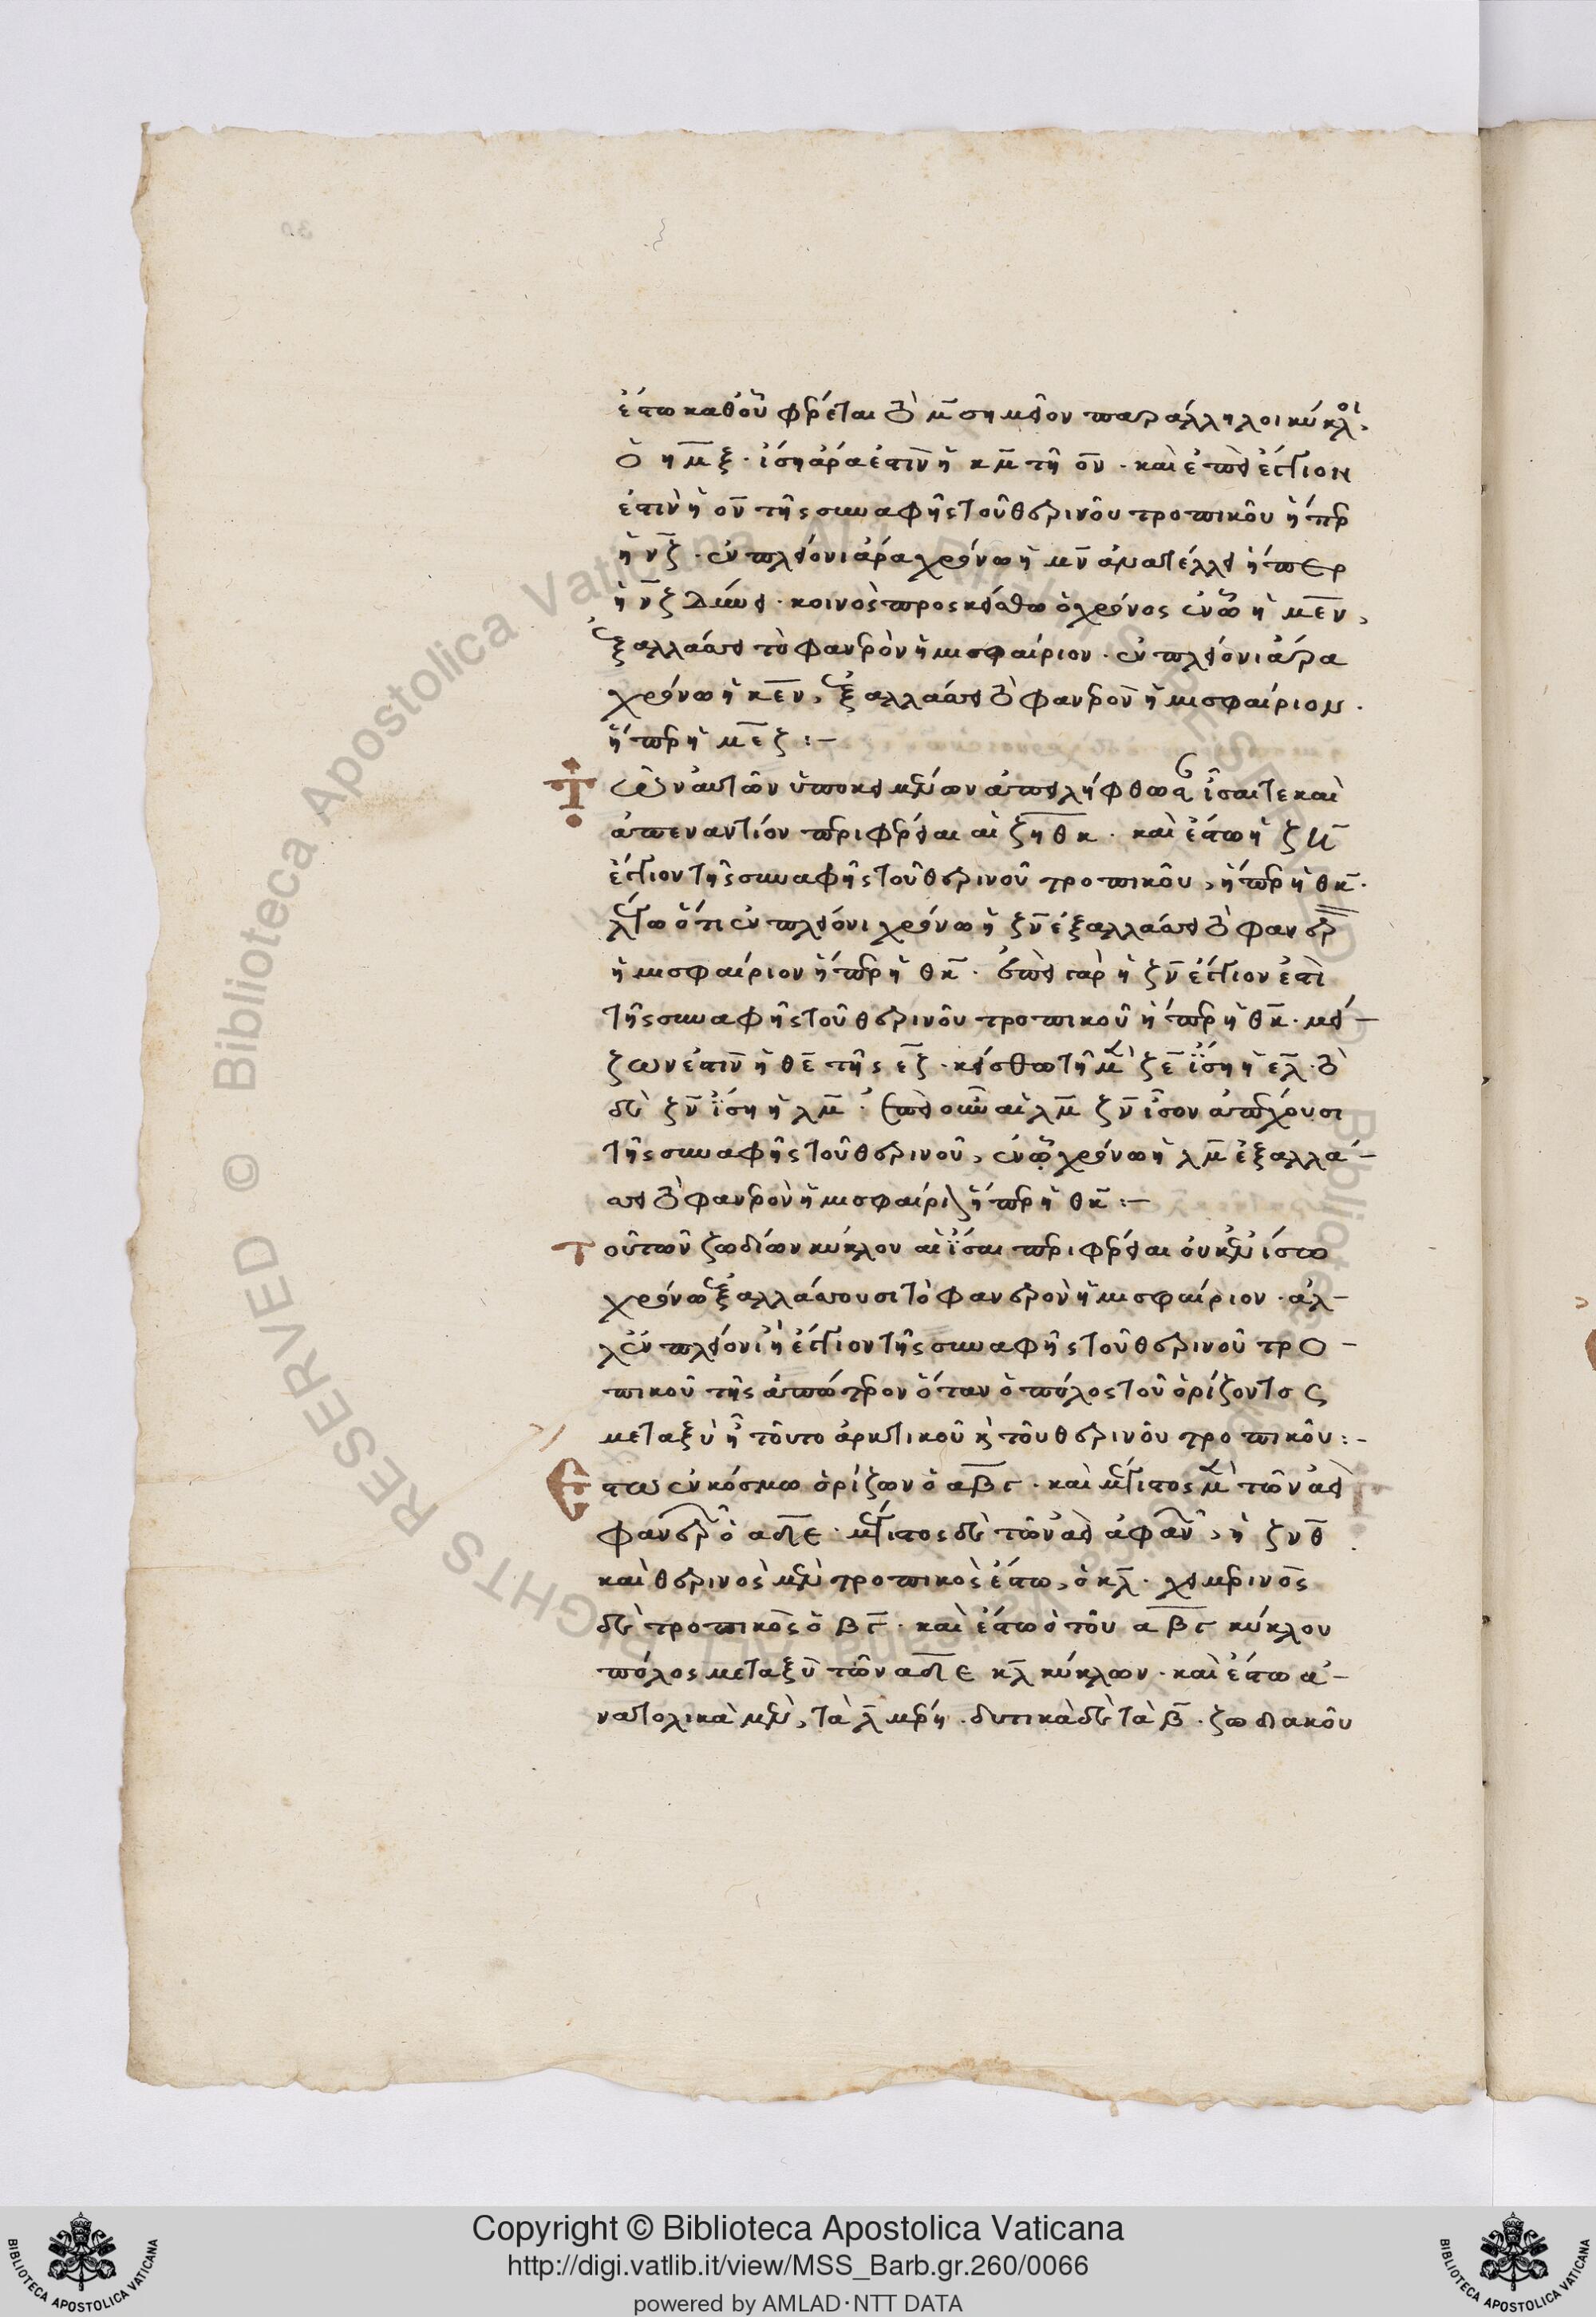 ἔστω καθ' οὗ φέρεται τὸ μ̅ σημεῖον παράλληλοι κύκλοι,
ὁ η̅μ̅ξ̅· ἴση ἄρα ἐστὶν ἡ κ̅μ̅ τῇ ο̅ν̅· καὶ ἐπεὶ ἔγγιον
ἐστὶν ἡ ο̅ν̅ τῆς συναφῆς τοῦ θερινοῦ τροπικοῦ ἤπερ
ἡ ν̅ζ̅· ἐν πλείονι ἄρα χρόνω ἡ μ̅ν̅ ἀνατέλλει ἤπερ
ἡ ν̅ζ̅ δύνει· κοινὸς προσκείσθω ὁ χρόνος ἐν ᾧ ἡ μ̅ε̅ν̅,
ἐξαλλάσσει τὸ φανερὸν ἡμισφαίριον· ἐν πλείονι ἄρα
χρόνω ἡ κ̅ε̅ν̅, ἐξαλλάσσει τὸ φανερὸν ἡμισφαίριον·
ἤπερ ἡ μ̅ε̅ζ̅:–
Τῶν αὐτῶν ὑποκειμένων ἀπειλήφθωσαν ἴσαι τε καὶ
ἀπεναντίον περιφέρειαι αἱ ζ̅η̅ θ̅κ̅· καὶ ἔστω ἡ ζ̅η̅
ἔγγιον τῆς συναφῆς τοῦ θερινοῦ τροπικοῦ, ἤπερ ἡ θ̅κ̅·
λέγω ὅτι ἐν πλείονι χρόνω ἡ ζ̅η̅ ἐξαλλάσσει τὸ φανερ
ἡμισφαίριον ἤπερ ἡ θ̅κ̅· ἐπεὶ γὰρ ἡ ζ̅η̅ ἔγγιον ἐστὶ
τῆς συναφῆς τοῦ θερινοῦ τροπικοῦ ἤπερ ἡ θ̅κ̅· μεί–
ζων ἐστὶν ἡ θ̅ε̅ τῆς ε̅ζ̅· κείσθω τῇ μὲν ζ̅ε̅ ἴση ἡ ε̅λ̅· τῇ
δὲ ζ̅η̅ ἴση ἡ λ̅μ̅· ἐπεὶ οὖν αἱ λ̅μ̅ ζ̅η̅ ἴσον ἀπέχουσι
τῆς συναφῆς τοῦ θερινοῦ, ἐν ᾧ χρόνω ἡ λ̅μ̅ ἐξαλλά–
σσει τὸ φανερὸν ἡμισφαίριον ἤπερ ἡ θ̅κ̅:–
Τοῦ τῶν ζωδίων κύκλου αἱ ἴσαι περιφέρειαι οὐκ ἐν ἴσω
χρόνω ἐξαλλάσσουσι τὸ φανερὸν ἡμισφαίριον· ἀλ–
λ' ἐν πλείονι ἡ ἔγγιον τῆς συναφῆς τοῦ θερινοῦ τρο–
πικοῦ τῆς ἀπώτερον ὅταν ὁ πόλος τοῦ ὁρίζοντος
μεταξὺ ἦ τοῦ τε ἀρκτικοῦ καὶ τοῦ θερινοῦ τροπικοῦ:–
Ἔστω ἐν κόσμω ὁρίζων ὁ α̅β̅γ̅· καὶ μέγιστος μὲν τῶν ἀεὶ
φανερῶν ὁ α̅δ̅ε̅· μέγιστος δὲ τῶν ἀεὶ ἀφανῶν, ἡ ζ̅η̅θ̅
καὶ θερινὸς μὲν τροπικὸς ἔστω, ὁ κ̅λ̅· χειμερινὸς
δὲ τροπικὸς ὁ β̅γ̅· καὶ ἔστω ὁ τοῦ α̅β̅γ̅ κύκλου
πόλος μεταξὺ τῶν α̅δ̅ε̅ κ̅λ̅ κύκλων· καὶ ἔστω ἀ–
νατολικὰ μὲν, τὰ λ̅ μέρη· δυτικὰ δὲ τὰ β̅· ζωδιακοῦ
Copyright © Biblioteca Apostolica Vaticana
http://digi.vatlib.it/view/MSS_Barb.gr.260/0066
powered by AMLAD·NTT DATA